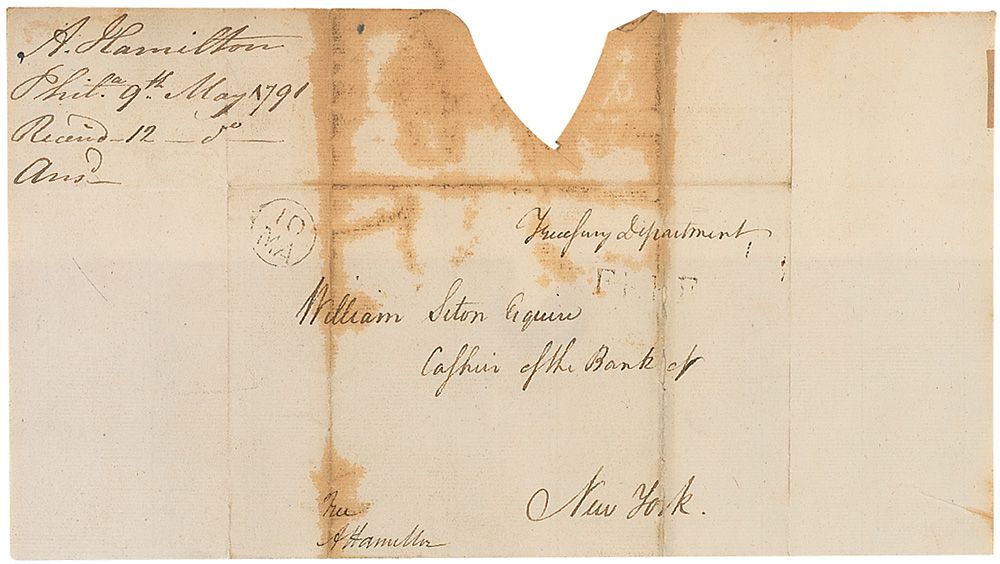 A. Hamilton
Phil.a 9.th May 1791
Receiv'd 12 do
Ans'd
10
MA
Treasury Department,
FREE
William Seton Esquire
Cashier of the Bank of
New York.
Free
A Hamilton